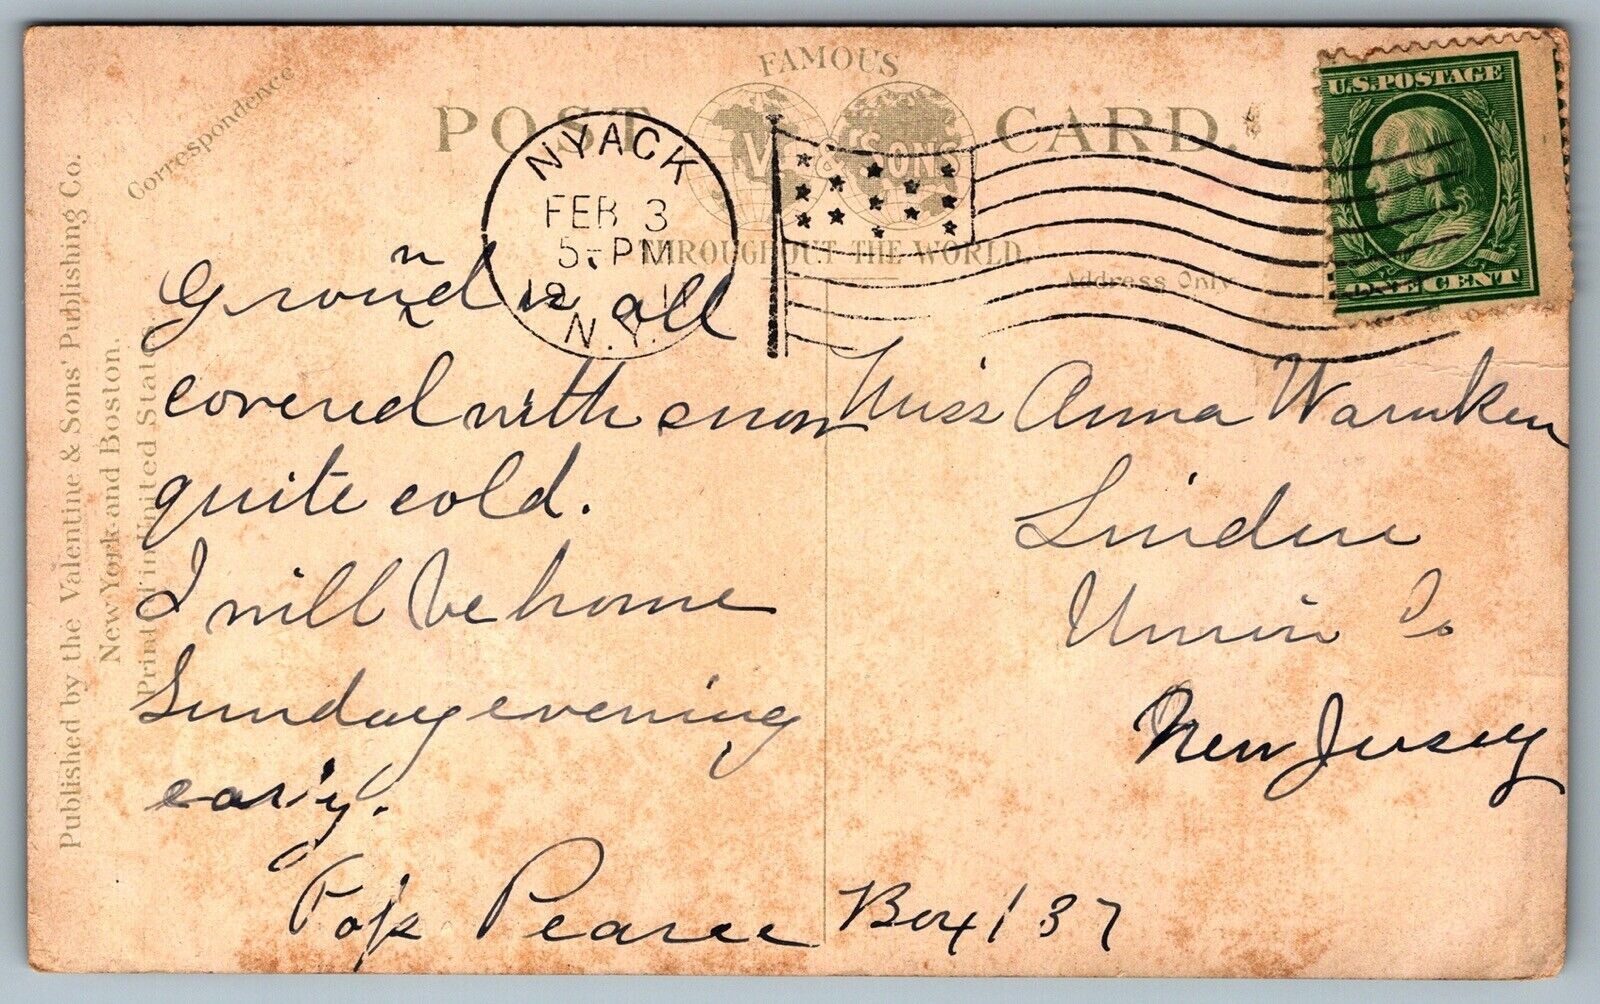 Published by the Valentine & Sons' Publishing Co.
New York and Boston.
Printed in United States.
Correspondence
FAMOUS
POST CARD.
V & SONS
THROUGHOUT THE WORLD.
Address Only
NYACK
FEB 3
5-PM
N.Y.
U.S. POSTAGE
ONE CENT
Ground is all
covered with snow
quite cold.
I will be home
Sunday evening
early.
Pearce
Miss Anna Warnken
Linden
Union Co
New Jersey
Box 137